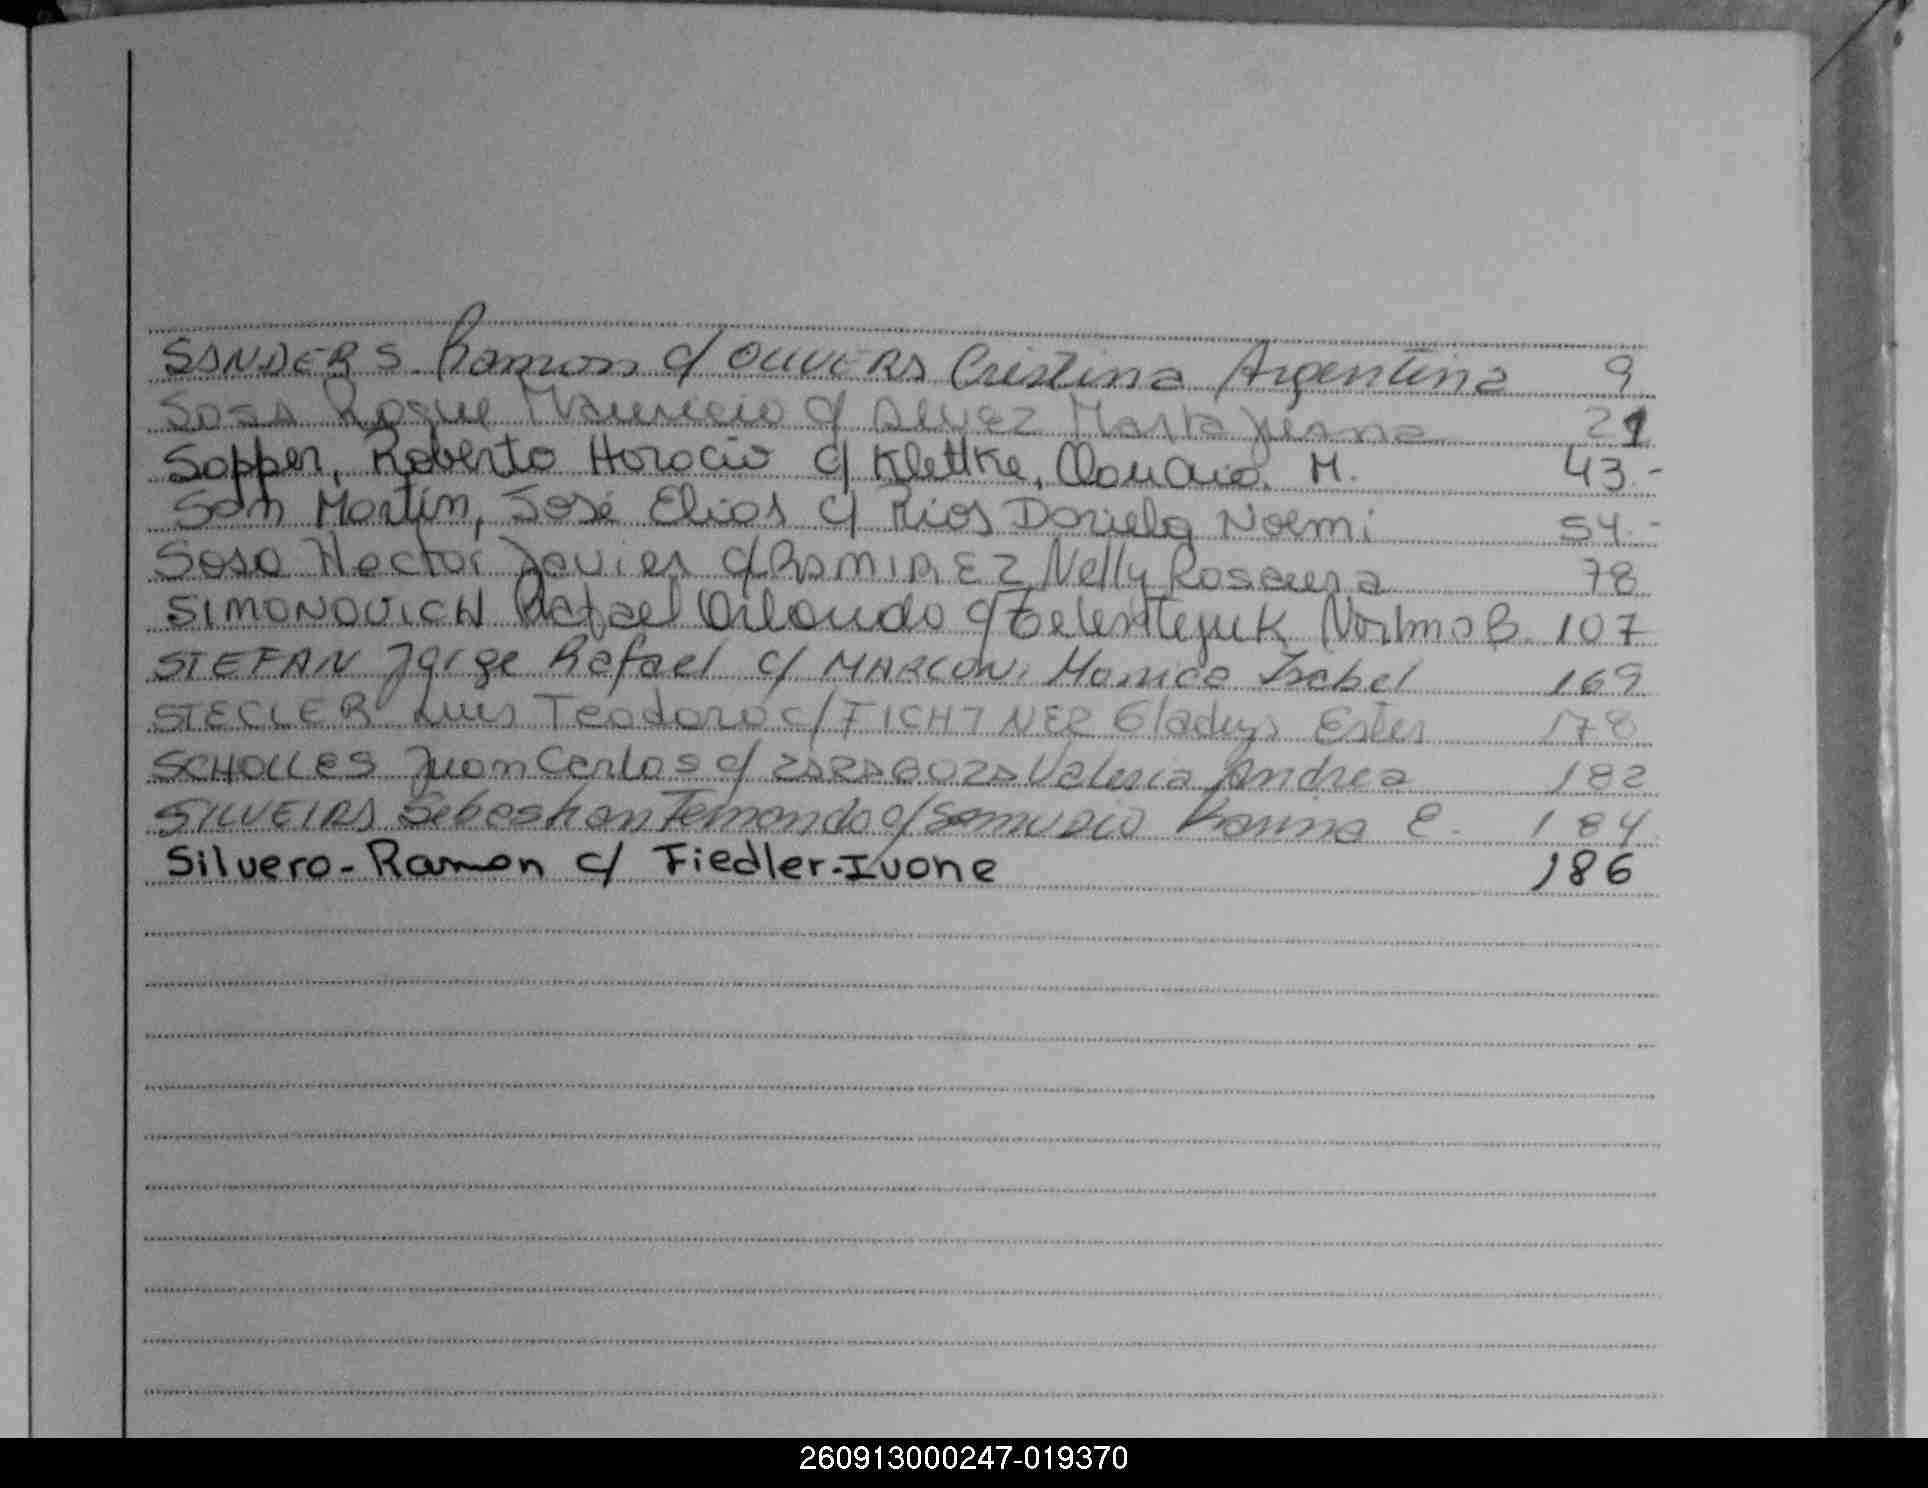 SANDERS Ramon c/ OLIVERA Cristina Argentina 9
SOSA Roque Mauricio c/ ALVEZ Marta Juana 21
Sopper, Roberto Horacio c/ Klettke, Claudia. M. 43.-
San Martín, José Elias c/ Rios Dariela Noemi 54.-
Sosa Hector Javier c/ RAMIREZ Nelly Rosaura 78
SIMONOVICH Rafael Orlando c/ Norma B. 107
STEFAN Jorge Rafael c/ MARCON. Monica Isabel 169
STECLER Luis Teodoro c/ FICHTNER Gladys Ester 178
SCHOLLES Juan Carlos c/ ZARAGOZA Valeria Andrea 182
SILVEIRA Sebastian Fernando c/ Samudio Karina E. 184
Silvero-Ramon c/ Fiedler-Ivone 186
260913000247-019370